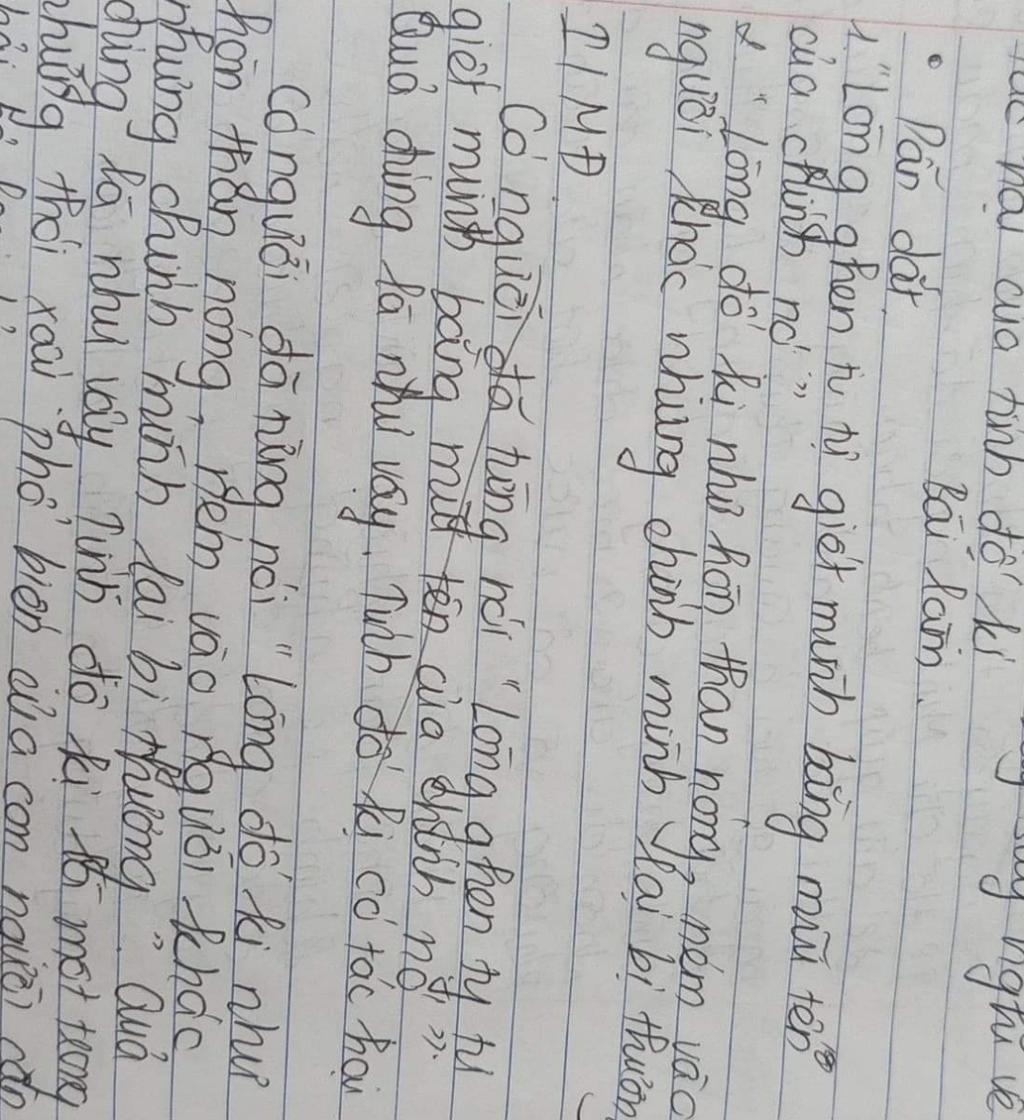 hại của tính đố kị
Bài làm.
• Dẫn dắt
1. "Lòng ghen tị tự giết mình bằng mũi tên
của chính nó"
2 "Lòng đố kị như hòn than nóng, ném vào
người khác nhưng chính mình lại bị thương
I / MĐ
Có người đã từng nói "Lòng ghen tỵ tự
giết mình bằng mũi tên của chính nó".
Quả đúng là như vậy. Tính đố kị có tác hại
Có người đã từng nói "Lòng đố kị như
hòn than nóng, ném vào người khác
nhưng chính mình lại bị thương". Quả
đúng là như vậy Tính đố kị là một trong
những thói xấu phổ biến của con người cần